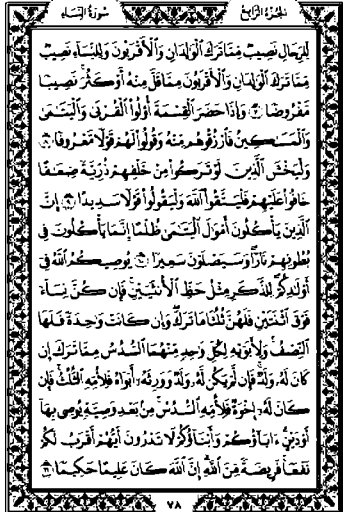 سُورَةُ النِّسَاءِ
الجُزْءُ الرَّابِعُ
لِلرِّجَالِ نَصِيبٌ مِمَّا تَرَكَ الْوَالِدَانِ وَالْأَقْرَبُونَ وَلِلنِّسَاءِ نَصِيبٌ
مِمَّا تَرَكَ الْوَالِدَانِ وَالْأَقْرَبُونَ مِمَّا قَلَّ مِنْهُ أَوْ كَثُرَ نَصِيبًا
مَفْرُوضًا ٧ وَإِذَا حَضَرَ الْقِسْمَةَ أُولُوا الْقُرْبَى وَالْيَتَامَى
وَالْمَسَاكِينُ فَارْزُقُوهُمْ مِنْهُ وَقُولُوا لَهُمْ قَوْلًا مَعْرُوفًا ٨
وَلْيَخْشَ الَّذِينَ لَوْ تَرَكُوا مِنْ خَلْفِهِمْ ذُرِّيَّةً ضِعَافًا
خَافُوا عَلَيْهِمْ فَلْيَتَّقُوا اللَّهَ وَلْيَقُولُوا قَوْلًا سَدِيدًا ٩ إِنَّ
الَّذِينَ يَأْكُلُونَ أَمْوَالَ الْيَتَامَى ظُلْمًا إِنَّمَا يَأْكُلُونَ فِي
بُطُونِهِمْ نَارًا وَسَيَصْلَوْنَ سَعِيرًا ١٠ يُوصِيكُمُ اللَّهُ فِي
أَوْلَادِكُمْ لِلذَّكَرِ مِثْلُ حَظِّ الْأُنْثَيَيْنِ فَإِنْ كُنَّ نِسَاءً
فَوْقَ اثْنَتَيْنِ فَلَهُنَّ ثُلُثَا مَا تَرَكَ وَإِنْ كَانَتْ وَاحِدَةً فَلَهَا
النِّصْفُ وَلِأَبَوَيْهِ لِكُلِّ وَاحِدٍ مِنْهُمَا السُّدُسُ مِمَّا تَرَكَ إِنْ
كَانَ لَهُ وَلَدٌ فَإِنْ لَمْ يَكُنْ لَهُ وَلَدٌ وَوَرِثَهُ أَبَوَاهُ فَلِأُمِّهِ الثُّلُثُ فَإِنْ
كَانَ لَهُ إِخْوَةٌ فَلِأُمِّهِ السُّدُسُ مِنْ بَعْدِ وَصِيَّةٍ يُوصِي بِهَا
أَوْ دَيْنٍ آبَاؤُكُمْ وَأَبْنَاؤُكُمْ لَا تَدْرُونَ أَيُّهُمْ أَقْرَبُ لَكُمْ
نَفْعًا فَرِيضَةً مِنَ اللَّهِ إِنَّ اللَّهَ كَانَ عَلِيمًا حَكِيمًا ١١
٧٨